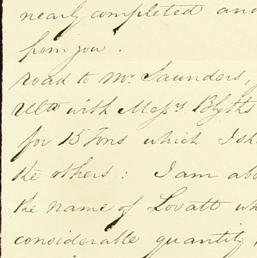 nearly completed and
from you.
road to Mr. Saunders,
Ulto with Messrs Blyths
for 15 Tons which I sh
the others: I am abo
the name of Lovatt wh
considerable quantity